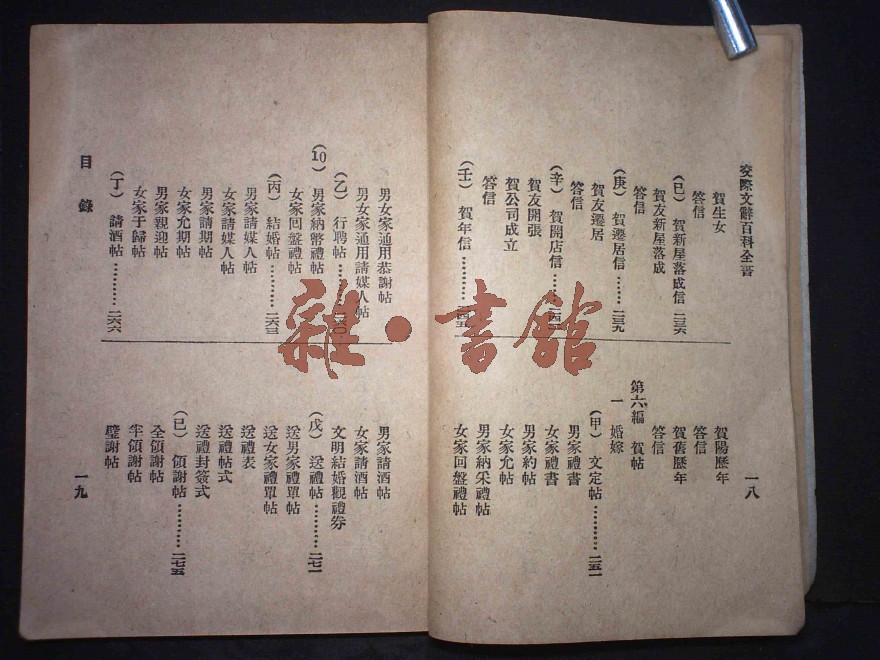 交際文辭百科全書
賀生女
答信
(巳) 賀新屋落成信 二三六
賀友新屋落成
答信
(庚) 賀遷居信……二三九
賀友遷居
答信
(辛) 賀開店信……二四二
賀友開張
賀公司成立
答信
(壬) 賀年信………二四五
賀陽歷年
答信
賀舊歷年
答信
第六編 賀帖
一 婚嫁
(甲) 文定帖………二五一
男家禮書
女家禮書
男家約帖
女家允帖
男家納采禮帖
女家回盤禮帖
一八
男女家通用恭謝帖
男女家通用請媒人帖
(乙) 行聘帖………二六〇
(10) 男家納幣禮帖
女家回盤禮帖
(丙) 結婚帖………二六三
男家請媒人帖
女家請媒人帖
男家請期帖
女家允期帖
男家親迎帖
女家于歸帖
(丁) 請酒帖………二六六
目錄
男家請酒帖
女家請酒帖
文明結婚觀禮券
(戊) 送禮帖………二七一
送男家禮單帖
送女家禮單帖
送禮表
送禮帖式
送禮封簽式
(已) 領謝帖………二七五
全領謝帖
半領謝帖
璧謝帖
一九
雜·書館